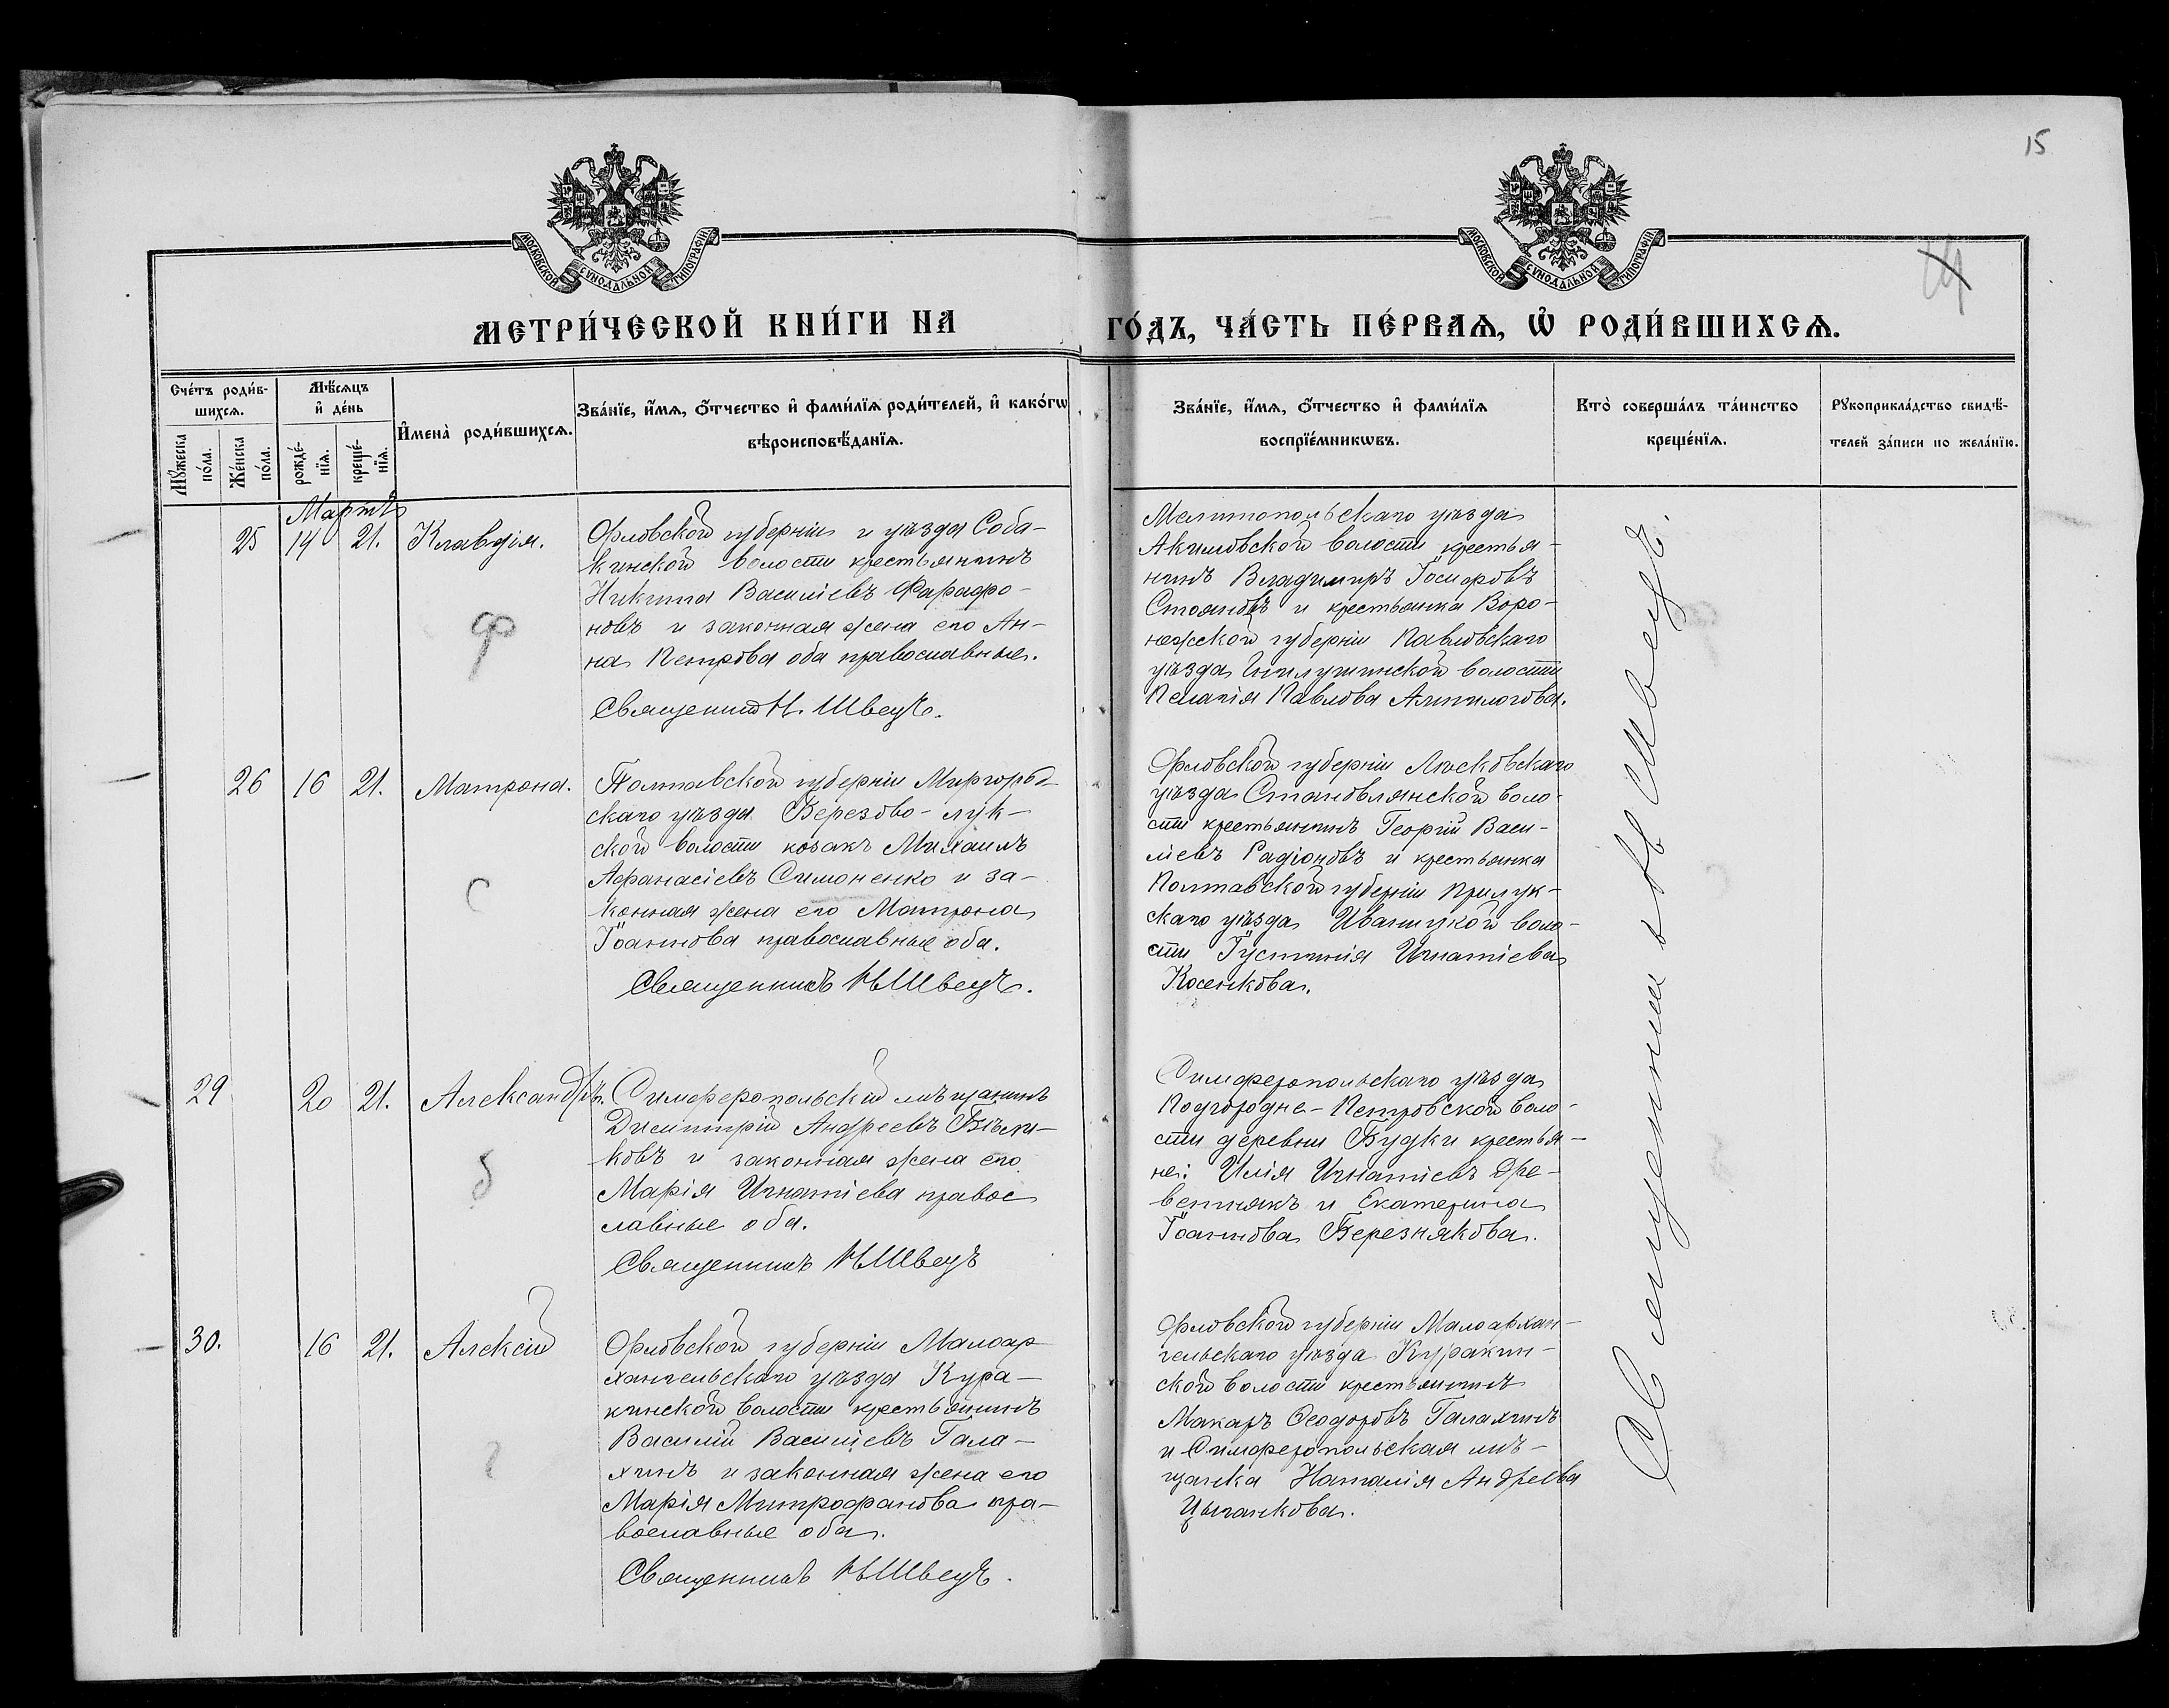 15
МОСКОВСКОЙ СѴНОДАЛЬНОЙ ТИПОГРАФІИ
МОСКОВСКОЙ СѴНОДАЛЬНОЙ ТИПОГРАФІИ
МЕТРИ́ЧЕСКОЙ КНИ́ГИ НА ГО́ДЪ, ЧА́СТЬ ПЕ́РВАѦ, Ѡ҆ РОДИ́ВШИХСѦ.
Сче́тъ роди́в-
шихсѧ.
Мѣ́сѧцъ
и҆ де́нь
Мꙋ́жеска
по́ла.
Же́нска
по́ла.
рожде́-
нїѧ.
креще́-
нїѧ.
И҆мена̀ роди́вшихсѧ.
Зва́нїе, и҆́мѧ, ѻ҆́тчество и҆ фами́лїѧ роди́телей, и҆ како́гѡ
вѣроисповѣ́данїѧ.
Зва́нїе, и҆́мѧ, ѻ҆́тчество и҆ фами́лїѧ
воспрїе́мникѡвъ.
Кто̀ соверша́лъ та́инство
креще́нїѧ.
Рꙋкоприкла́дство свидѣ́-
телей за́писи по жела́нїю.
Мартъ
25 14 21. Клавдія.
Орловской губерніи и уѣзда Соба-
кинской волости крестьянинъ
Никита Василіевъ Фарафо-
новъ и законная жена его Ан-
на Петрова оба православные.
Священникъ Н. Швецъ.
Мелитопольскаго уѣзда
Акимовской волости крестья-
нинъ Владимиръ Іосифовъ
Стояновъ и крестьянка Воро-
нежской губерніи Павловскаго
уѣзда волости
Пелагія Павлова Анпилогова.
ф
26 16 21. Матрона.
Полтавской губерніи Миргород-
скаго уѣзда Березово-лук-
ской волости козакъ Михаилъ
Афанасіевъ Симоненко и за-
конная жена его Матрона
Іоаннова православные оба.
Священникъ Н Швецъ.
Орловской губерніи
уѣзда Становлянской воло-
сти крестьянинъ Георгій Васи-
ліевъ Радіоновъ и крестьянка
Полтавской губерніи Прилук-
скаго уѣзда Иваницкой воло-
сти Іустинія Игнатіева
Косенкова.
с
29 20 21. Александръ.
Симферопольскій мѣщанинъ
Димитрій Андреевъ Бѣли-
ковъ и законная жена его
Марія Игнатіева правос
лавные оба.
Священникъ Н Швецъ
Симферопольскаго уѣзда
Подгородне-Петровской воло-
сти деревни Будки крестья-
не: Илія Игнатіевъ Дре-
ветнякъ и Екатерина
Іоаннова Березнякова.
б
30. 16 21. Алексій
Орловской губерніи Малоар
хангельскаго уѣзда Кура-
кинской волости крестьянинъ
Василій Василіевъ Гала-
хинъ и законная жена его
Марія Митрофанова пра-
вославные оба.
Священникъ Н Швецъ.
Орловской губерніи Малоархан-
гельскаго уѣзда Куракин-
ской волости крестьянинъ
Макаръ Ѳеодоровъ Галахинъ
и Симферопольская мѣ-
щанка Наталія Андреева
Цыганкова.
г
Священникъ Швецъ.